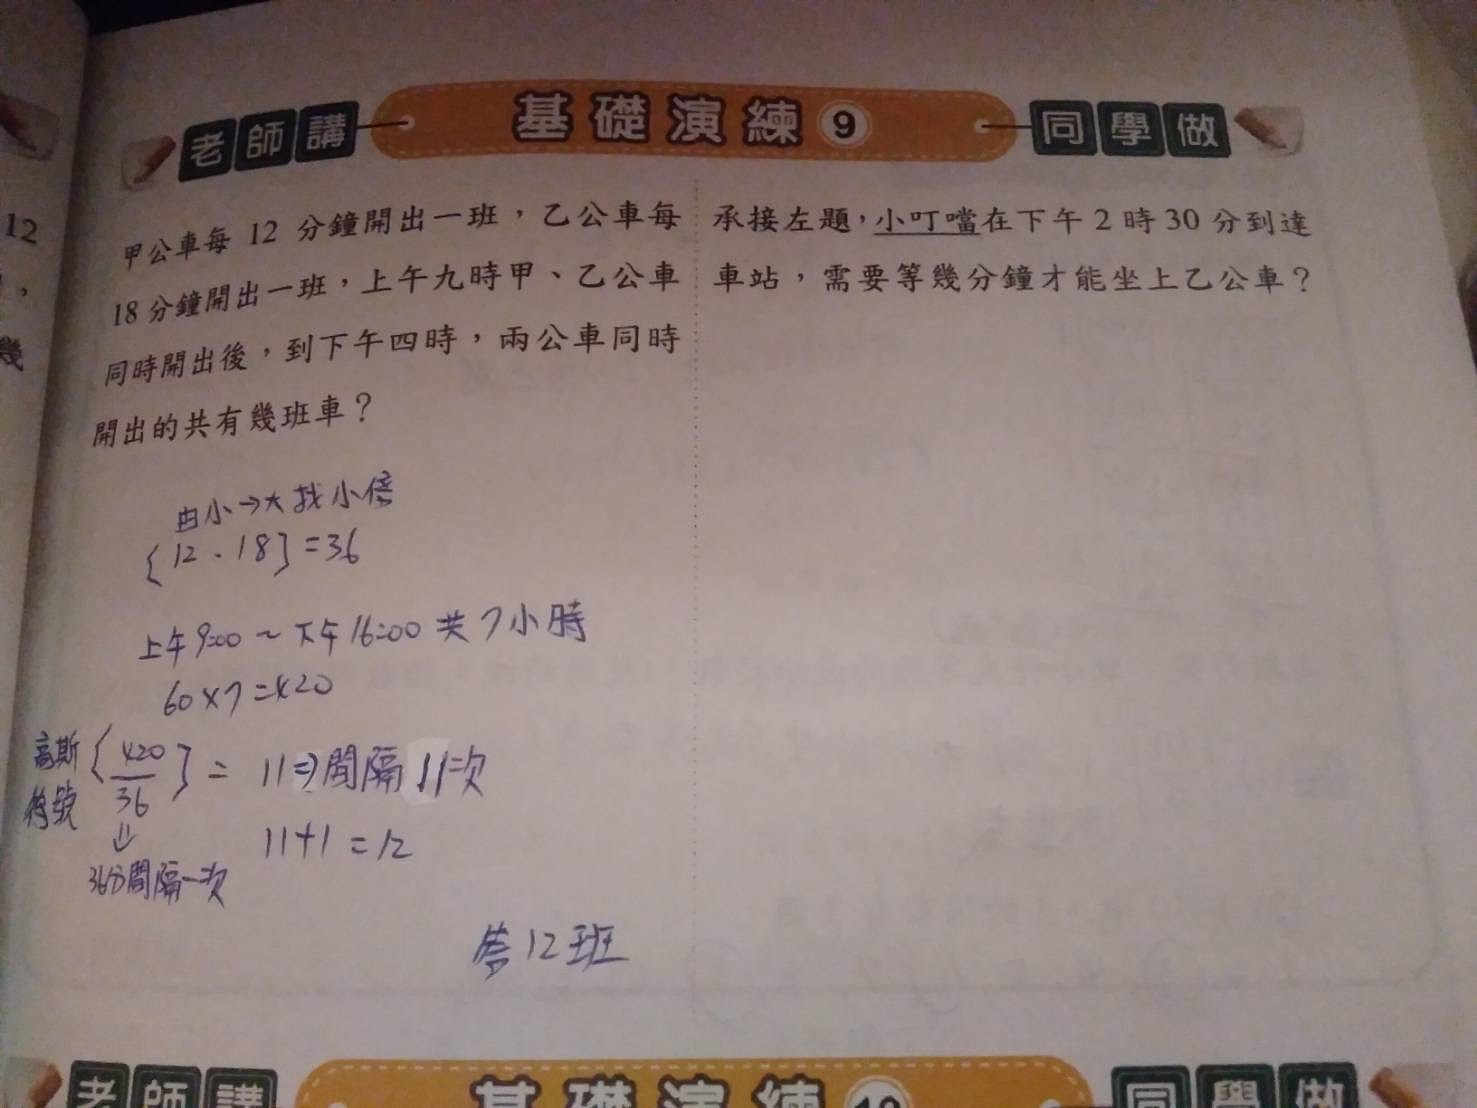 12
，
幾
老師講
基礎演練 9
同學做
甲公車每 12 分鐘開出一班，乙公車每
18 分鐘開出一班，上午九時甲、乙公車
同時開出後，到下午四時，兩公車同時
開出的共有幾班車？
由小→大找小倍
[12、18] = 36
上午9:00 ~ 下午16:00 共7小時
60×7=420
高斯
符號
[420/36] = 11 ⇒ 間隔 11次
⇓
36分間隔一次
11+1 = 12
答 12 班
承接左題，小叮噹在下午 2 時 30 分到達
車站，需要等幾分鐘才能坐上乙公車？
老師講
基礎演練 10
同學做